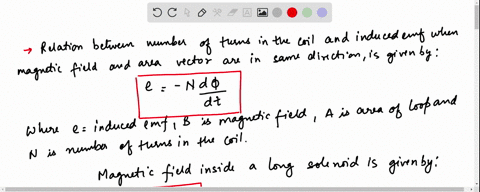 → Relation between number of turns in the coil and induced emf when
magnetic field and area vector are in same direction, is given by:
e = -N dϕ/dt
Where e = induced emf, B is magnetic field, A is area of loop and
N is number of turns in the coil.
Magnetic field inside a long solenoid is given by: